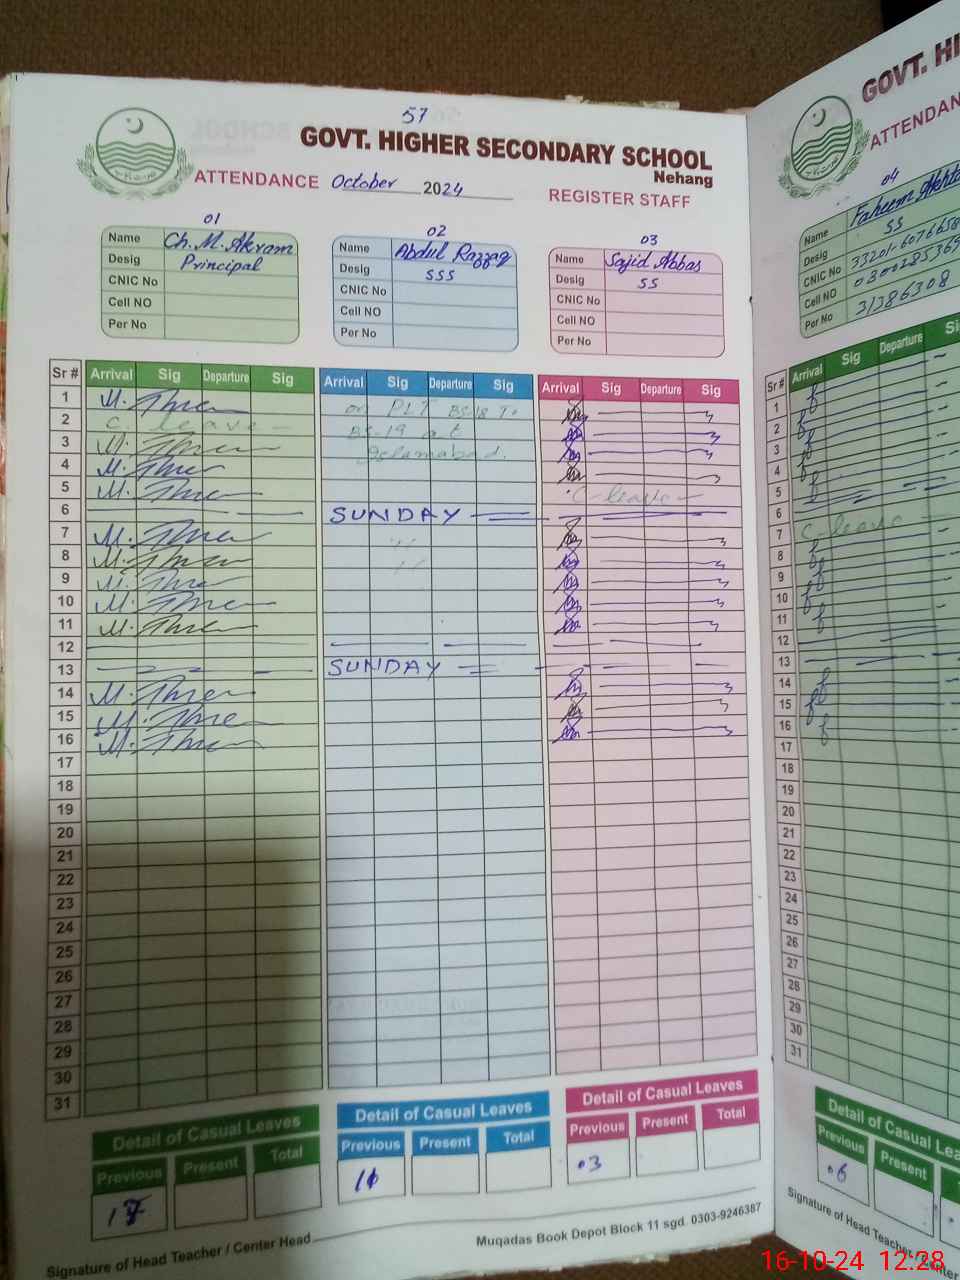 57
GOVT. HIGHER SECONDARY SCHOOL
Nehang
ATTENDANCE October 2024 REGISTER STAFF
01
Name Ch. M. Akram
Desig Principal
CNIC No
Cell NO
Per No
02
Name Abdul Razzaq
Desig SSS
CNIC No
Cell NO
Per No
03
Name Sajid Abbas
Desig SS
CNIC No
Cell NO
Per No
Sr # Arrival Sig Departure Sig Arrival Sig Departure Sig Arrival Sig Departure Sig
1 on PLT BS-18 To
2 C. leave BS-19 at
3 Islamabad.
4
5 C-leave
6 SUNDAY
7
8
9
10
11
12
13 SUNDAY
14
15
16
17
18
19
20
21
22
23
24
25
26
27
28
29
30
31
Detail of Casual Leaves
Previous Present Total
17
Detail of Casual Leaves
Previous Present Total
Detail of Casual Leaves
Previous Present Total
03
Signature of Head Teacher / Center Head
Muqadas Book Depot Block 11 sgd. 0303-9246387
GOVT. HI
ATTENDAN
04
Name Faheem Akhta
Desig SS
CNIC No
Cell NO
Per No 31386308
Sr # Arrival Sig Departure Si
1
2
3
4
5
6
7 C-leave
8
9
10
11
12
13
14
15
16
17
18
19
20
21
22
23
24
25
26
27
28
29
30
31
Detail of Casual Lea
Previous Present
06
Signature of Head Teacher / Center
16-10-24 12:28